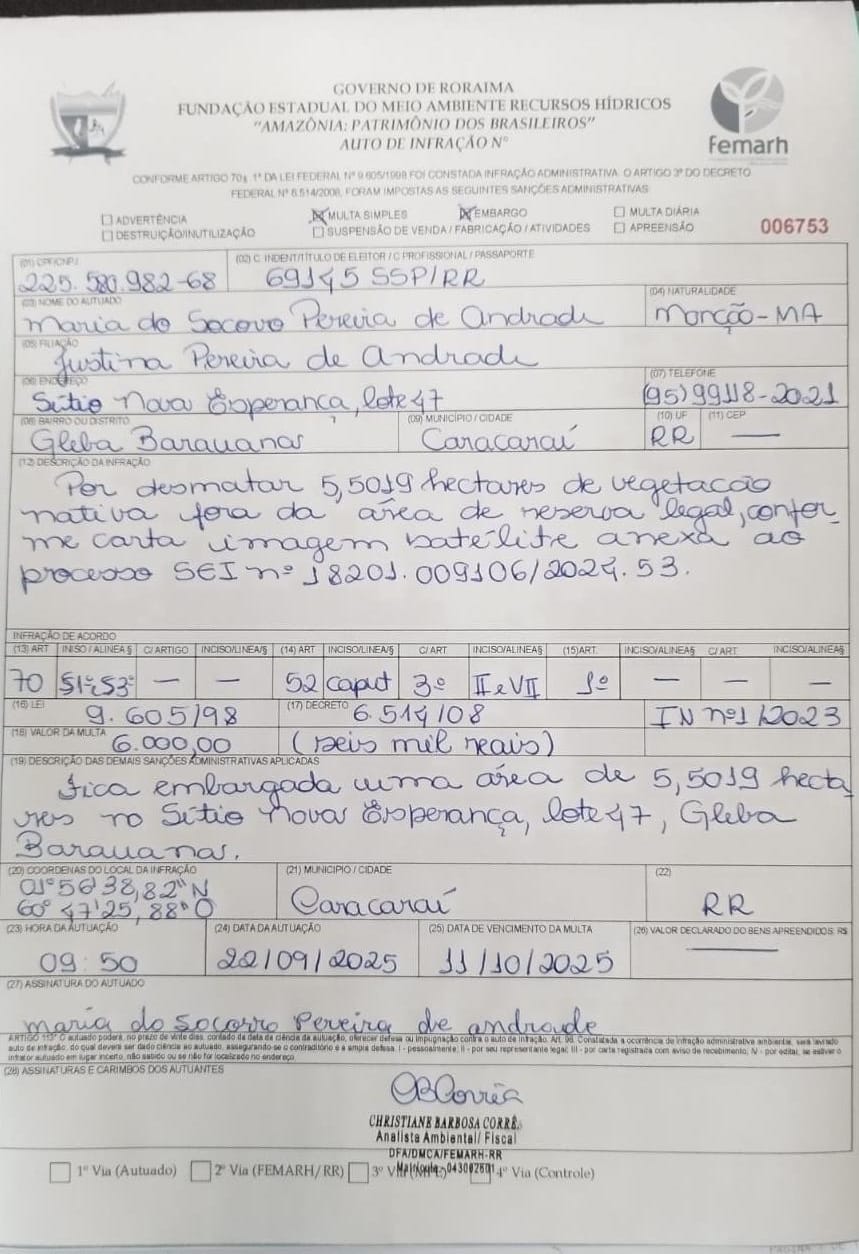 GOVERNO DE RORAIMA
FUNDAÇÃO ESTADUAL DO MEIO AMBIENTE RECURSOS HÍDRICOS
"AMAZÔNIA: PATRIMÔNIO DOS BRASILEIROS"
AUTO DE INFRAÇÃO Nº
Femarh
CONFORME ARTIGO 70 § 1º DA LEI FEDERAL Nº 9.605/1998 FOI CONSTADA INFRAÇÃO ADMINISTRATIVA. O ARTIGO 3º DO DECRETO
FEDERAL Nº 6.514/2008, FORAM IMPOSTAS AS SEGUINTES SANÇÕES ADMINISTRATIVAS
ADVERTÊNCIA MULTA SIMPLES EMBARGO MULTA DIÁRIA
DESTRUIÇÃO/INUTILIZAÇÃO SUSPENSÃO DE VENDA / FABRICAÇÃO / ATIVIDADES APREENSÃO
006753
(01) CPF/CNPJ (02) C. INDENT/TÍTULO DE ELEITOR / C PROFISSIONAL / PASSAPORTE
225.580.982-68 69145 SSP/RR
(03) NOME DO AUTUADO (04) NATURALIDADE
Maria do Socovo Pereira de Andrade Monção-MA
(05) FILIAÇÃO
Justina Pereira de Andrade
(06) ENDEREÇO (07) TELEFONE
Sítio Nova Esperança, lote 47 (95) 99118-2021
(08) BAIRRO OU DISTRITO (09) MUNICÍPIO / CIDADE (10) UF (11) CEP
Gleba Barauanas Caracaraí RR —
(12) DESCRIÇÃO DA INFRAÇÃO
Por desmatar 5,5019 hectares de vegetação
nativa fora da área de reserva legal, confor
me carta imagem satélite anexa ao
processo SEI nº 18201.009106/2024.53.
INFRAÇÃO DE ACORDO
(13) ART INISO / ALINEA § C/ ARTIGO INCISO/LINEA/§ (14) ART INCISO/LINEA/§ C/ ART INCISO/ALINEA§ (15)ART. INCISO/ALINEA§ C/ ART. INCISO/ALINEA§
70 §1º,§3º — — 52 caput 3º II e VII 1º — — —
(16) LEI (17) DECRETO
9.605/98 6.514/08 IN nº1/2023
(18) VALOR DA MULTA
6.000,00 (seis mil reais)
(19) DESCRIÇÃO DAS DEMAIS SANÇÕES ADMINISTRATIVAS APLICADAS
Fica embargada uma área de 5,5019 hecta
res no Sítio Nova Esperança, lote 47, Gleba
Barauanas.
(20) COORDENAS DO LOCAL DA INFRAÇÃO (21) MUNICIPIO / CIDADE (22)
01º 56' 38,82" N
60º 47' 25,88" O Caracaraí RR
(23) HORA DA AUTUAÇÃO (24) DATA DA AUTUAÇÃO (25) DATA DE VENCIMENTO DA MULTA (26) VALOR DECLARADO DO BENS APREENDIDOS: R$
09:50 22/09/2025 11/10/2025 —
(27) ASSINATURA DO AUTUADO
maria do socorro Pereira de andrade
ARTIGO 113º O autuado poderá, no prazo de vinte dias, contado da data da ciência da autuação, oferecer defesa ou impugnação contra o auto de infração. Art. 96. Constatada a ocorrência de infração administrativa ambiental, será lavrado
auto de infração, do qual deverá ser dado ciência ao autuado, assegurando-se o contraditório e a ampla defesa. I - pessoalmente; II - por seu representante legal; III - por carta registrada com aviso de recebimento; IV - por edital, se estiver o
infrator autuado em lugar incerto, não sabido ou se não for localizado no endereço.
(28) ASSINATURAS E CARIMBOS DOS AUTUANTES
CBCorrêa
CHRISTIANE BARBOSA CORRÊ
Analista Ambiental/ Fiscal
DFA/DMCA/FEMARH-RR
1ª Via (Autuado) 2ª Via (FEMARH/RR) 3ª Via 4ª Via (Controle)